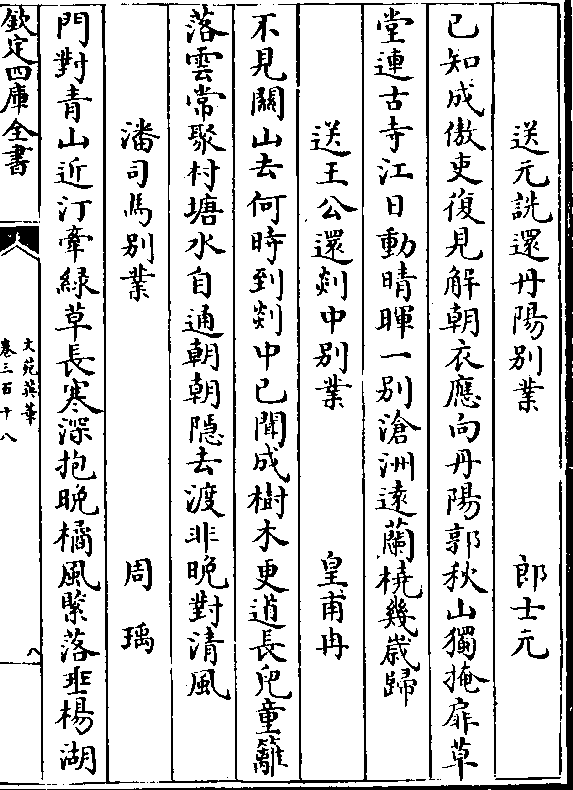 送元詵還丹陽別業 郎士元
已知成傲吏復見解朝衣應向丹陽郭秋山獨掩扉草
堂連古寺江日動晴暉一別滄洲逺蘭橈幾歲歸
送王公還剡中別業 皇甫冉
不見關山去何時到剡中已聞成樹木更道長兒童籬
落雲常聚村塘水自通朝朝隠去渡非晚對清風
潘司馬別業 周瑀
門對青山近汀牽緑草長寒深抱晚橘風緊落垂楊湖
欽定四庫全書
文苑英華
卷三百十八
八